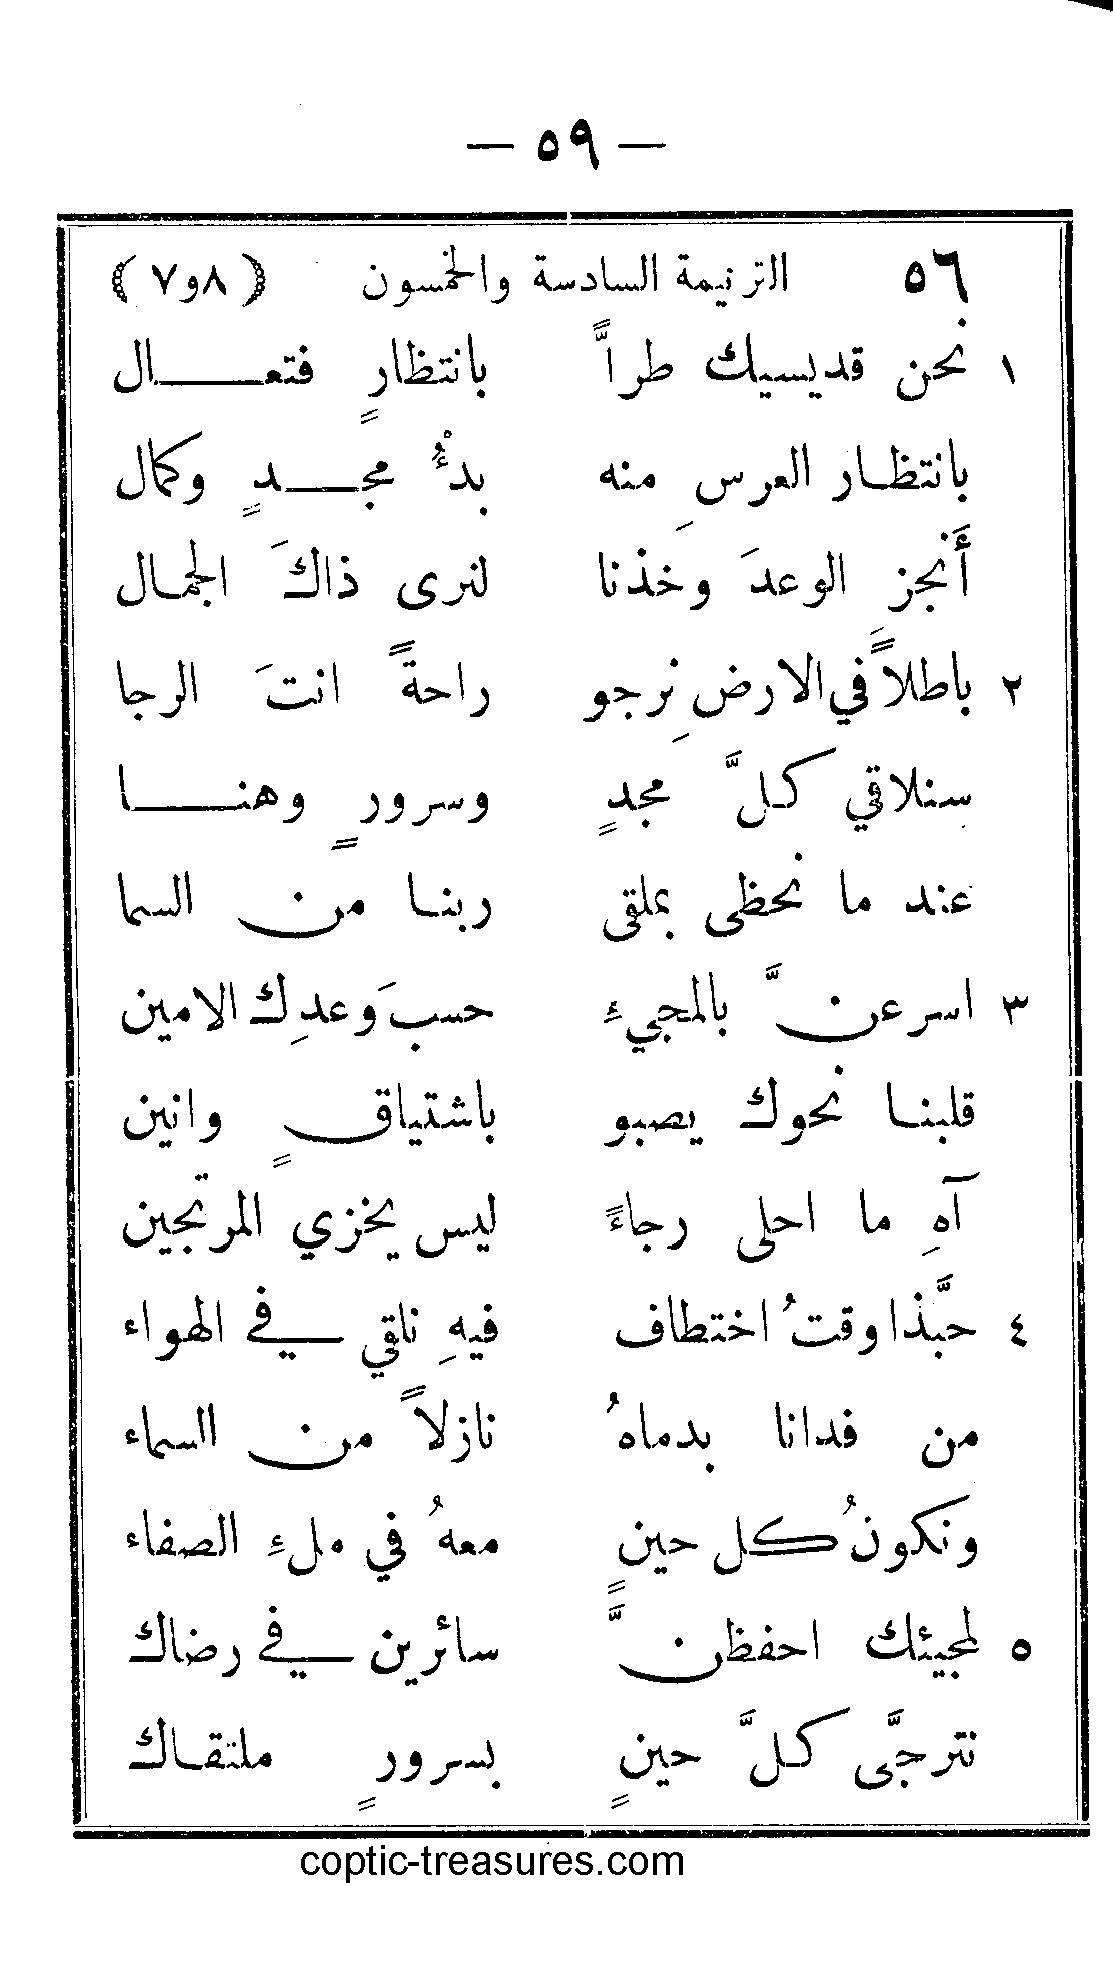 — ٥٩ —
٥٦ الترنيمة السادسة والخمسون (٨و٧)
١ نحن قديسيك طراًّ بانتظارٍ فتعـــال
بانتظار العرسِ منه بدءُ مجـــدٍ وكمال
أَنجز الوعدَ وخذنا لنرى ذاكَ الجمال
٢ باطلاً في الارضِ نرجو راحةً انتَ الرجا
سنلاقي كلَّ مجدٍ وسرورٍ وهنـــا
عند ما نحظى بملقى ربنا من السما
٣ اسرعنَّ بالمجيءِ حسبَ وعدِك الامين
قلبنا نحوك يصبو باشتياقٍ وانين
آهِ ما احلى رجاءً ليس يخزي المرتجين
٤ حبَّذا وقتُ اختطاف فيهِ ناقي في الهواء
من فدانا بدماهُ نازلاً من السماء
ونكونُ كل حينٍ معهُ في ملءِ الصفاء
٥ لمجيئك احفظنَّ سائرين في رضاك
نترجَّى كلَّ حينٍ بسرورٍ ملتقاك
coptic-treasures.com